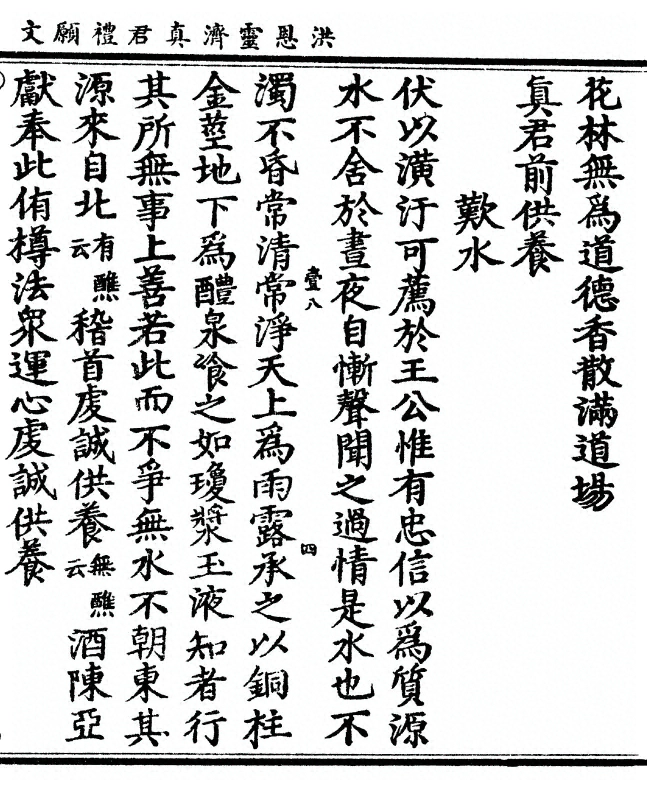 洪恩靈濟真君禮願文
花林無爲道德香散滿道場
真君前供養
歎水
伏以潢汙可薦於王公惟有忠信以爲質源
水不舍於晝夜自慚聲聞之過情是水也不
壹八
四
濁不昏常清常淨天上爲雨露承之以銅柱
金莖地下爲醴泉飡之如瓊漿玉液知者行
其所無事上善若此而不爭無水不朝東其
源來自北有醮云稽首虔誠供養無醮云酒陳亞
獻奉此侑樽法衆運心虔誠供養